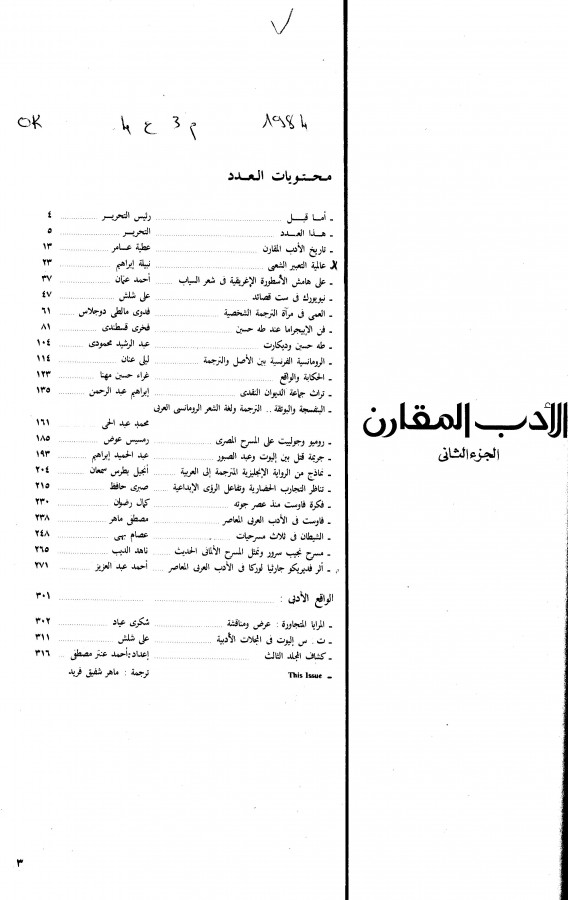 OK م 3 ع 4 1984
محتويات العدد
ـ أما قبل ........ رئيس التحرير ........ ٤
ـ هذا العدد ........ التحرير ........ ٥
ـ تاريخ الأدب المقارن ........ عطية عامر ........ ١٣
ـ عالمية التعبير الشعبى ........ نبيلة إبراهيم ........ ٢٣
ـ على هامش الأسطورة الإغريقية فى شعر السياب ........ أحمد عثمان ........ ٣٧
ـ نيويورك فى ست قصائد ........ على شلش ........ ٤٧
ـ العمى فى مرآة الترجمة الشخصية ........ فدوى مالطى دوجلاس ........ ٦١
ـ فن الإبيجراما عند طه حسين ........ فخرى قسطندى ........ ٨١
ـ طه حسين وديكارت ........ عبد الرشيد محمودى ........ ١٠٤
ـ الرومانسية الفرنسية بين الأصل والترجمة ........ ليلى عنان ........ ١١٤
ـ الحكاية والواقع ........ غراء حسين مهنا ........ ١٢٣
ـ تراث جماعة الديوان النقدى ........ إبراهيم عبد الرحمن ........ ١٣٥
ـ البنفسجة والبوتقة .. الترجمة ولغة الشعر الرومانسى العربى
محمد عبد الحى ........ ١٦١
ـ روميو وجولييت على المسرح المصرى ........ رمسيس عوض ........ ١٨٥
ـ جريمة قتل بين إليوت وعبد الصبور ........ عبد الحميد إبراهيم ........ ١٩٣
ـ نماذج من الرواية الإنجليزية المترجمة إلى العربية ........ أنجيل بطرس سمعان ........ ٢٠٤
ـ تناظر التجارب الحضارية وتفاعل الرؤى الإبداعية ........ صبرى حافظ ........ ٢١٥
ـ فكرة فاوست منذ عصر جوته ........ كمال رضوان ........ ٢٣٠
ـ فاوست فى الأدب العربى المعاصر ........ مصطفى ماهر ........ ٢٣٨
ـ الشيطان فى ثلاث مسرحيات ........ عصام بهى ........ ٢٤٨
ـ مسرح نجيب سرور وتمثل المسرح الألمانى الحديث ........ ناهد الديب ........ ٢٦٥
ـ أثر فديريكو جارثيا لوركا فى الأدب العربى المعاصر ........ أحمد عبد العزيز ........ ٢٧١
الواقع الأدبى : ........ ٣٠١
ـ المرايا المتجاورة : عرض ومناقشة ........ شكرى عياد ........ ٣٠٢
ـ ت . س إليوت فى المجلات الأدبية ........ على شلش ........ ٣١١
ـ كشاف المجلد الثالث ........ إعداد : أحمد عنتر مصطفى ........ ٣١٦
ـ This Issue ........ ترجمة : ماهر شفيق فريد
٣
الأدب المقارن
الجزء الثانى